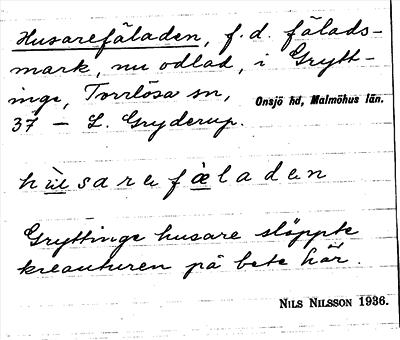 Husarefäladen, f.d. fälads-
mark, nu odlad, i Grytt-
inge, Torrlösa sn, Onsjö hd, Malmöhus län.
37 – L. Gryderup.
hùsarefæ̀laden
Gryttinge husare släppte
kreauturen på bete här.
NILS NILSSON 1936.